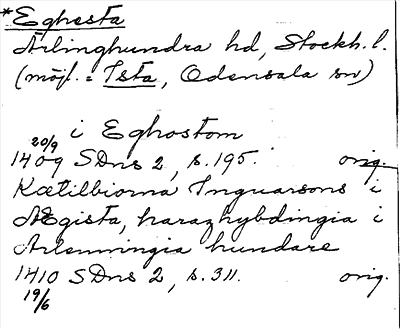 *Eghesta
Ärlinghundra hd, Stockh. l.
(möjl. = Ista, Odensala sn)
i Eghostom
20/9
1409 SDns 2, s. 195. orig.
Kætilbiorna Inguarsons i
Ægista, haraz hybdingia i
Arlenningia hundare
1410 SDns 2, s. 311. orig.
19/6